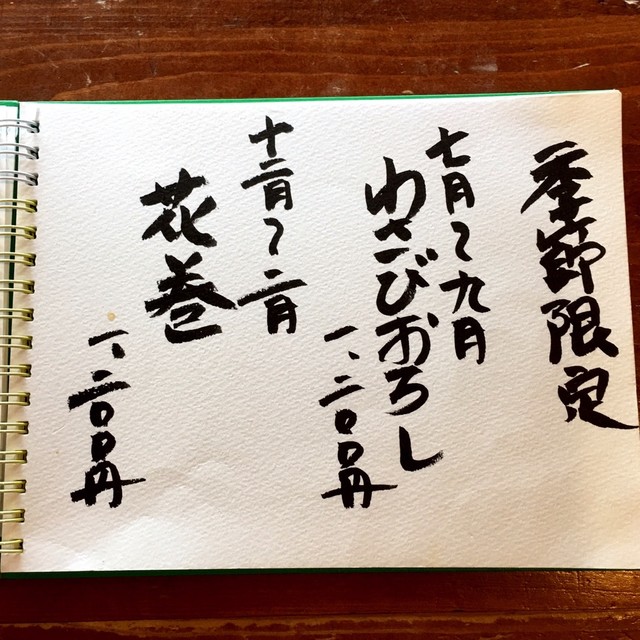 季節限定
七月〜九月
わさびおろし
一、二〇〇円
十二月〜二月
花巻
一、二〇〇円